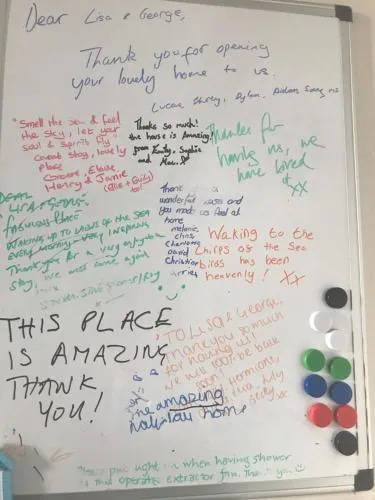 Dear Lisa & George,
Thank you for opening
your lovely home to us.
"Smell the sea & feel
the sky, let your
soul & spirit fly"
Great stay, lovely
place
Henry & Jamie
Thanks so much!
the house is Amazing!
from Emily, Sophie
and Max.
Thanks for
having us, we
have loved
it xx
DEAR
LISA & GEORGE
FABULOUS PLACE
WAKING UP TO VIEWS OF THE SEA
EVERY MORNING - VERY INSPIRING
Thank you for a very enjoyable
stay, we will come again
Thank you
wonderful oasis and
you made us feel at
home
melanie
chris
Charlotte
David
Christian
Waking to the
chirps of the sea
birds has been
heavenly! XX
THIS PLACE
IS AMAZING
THANK
YOU!
TO Lisa & George,
Thank you so much
for having us!
we will be back
soon!
Hermione,
Lily
the amazing
home
light when having shower
operate extractor fan.